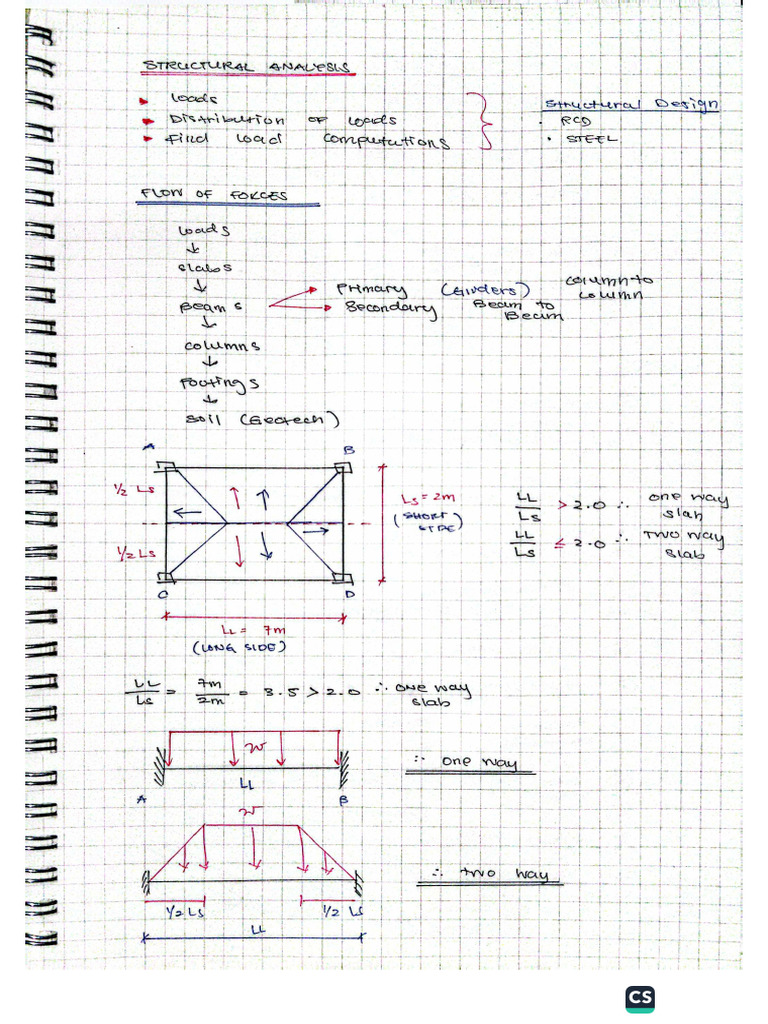 STRUCTURAL ANALYSIS
Loads
Distribution of Loads
Find Load Computations
Structural Design
RCD
STEEL
FLOW OF FORCES
Loads
↓
Slabs
↓
Beams
Primary (Girders) column to column
Secondary Beam to Beam
↓
columns
↓
Footings
↓
Soil (Geotech)
A
B
1/2 Ls
1/2 Ls
C
D
Ls = 2m
(SHORT SIDE)
LL = 7m
(LONG SIDE)
LL/Ls > 2.0 ∴ one way slab
LL/Ls ≤ 2.0 ∴ TWO way slab
LL/Ls = 7m/2m = 3.5 > 2.0 ∴ one way slab
w
LL
A
B
∴ one way
w
∴ two way
1/2 Ls
1/2 Ls
LL
CS